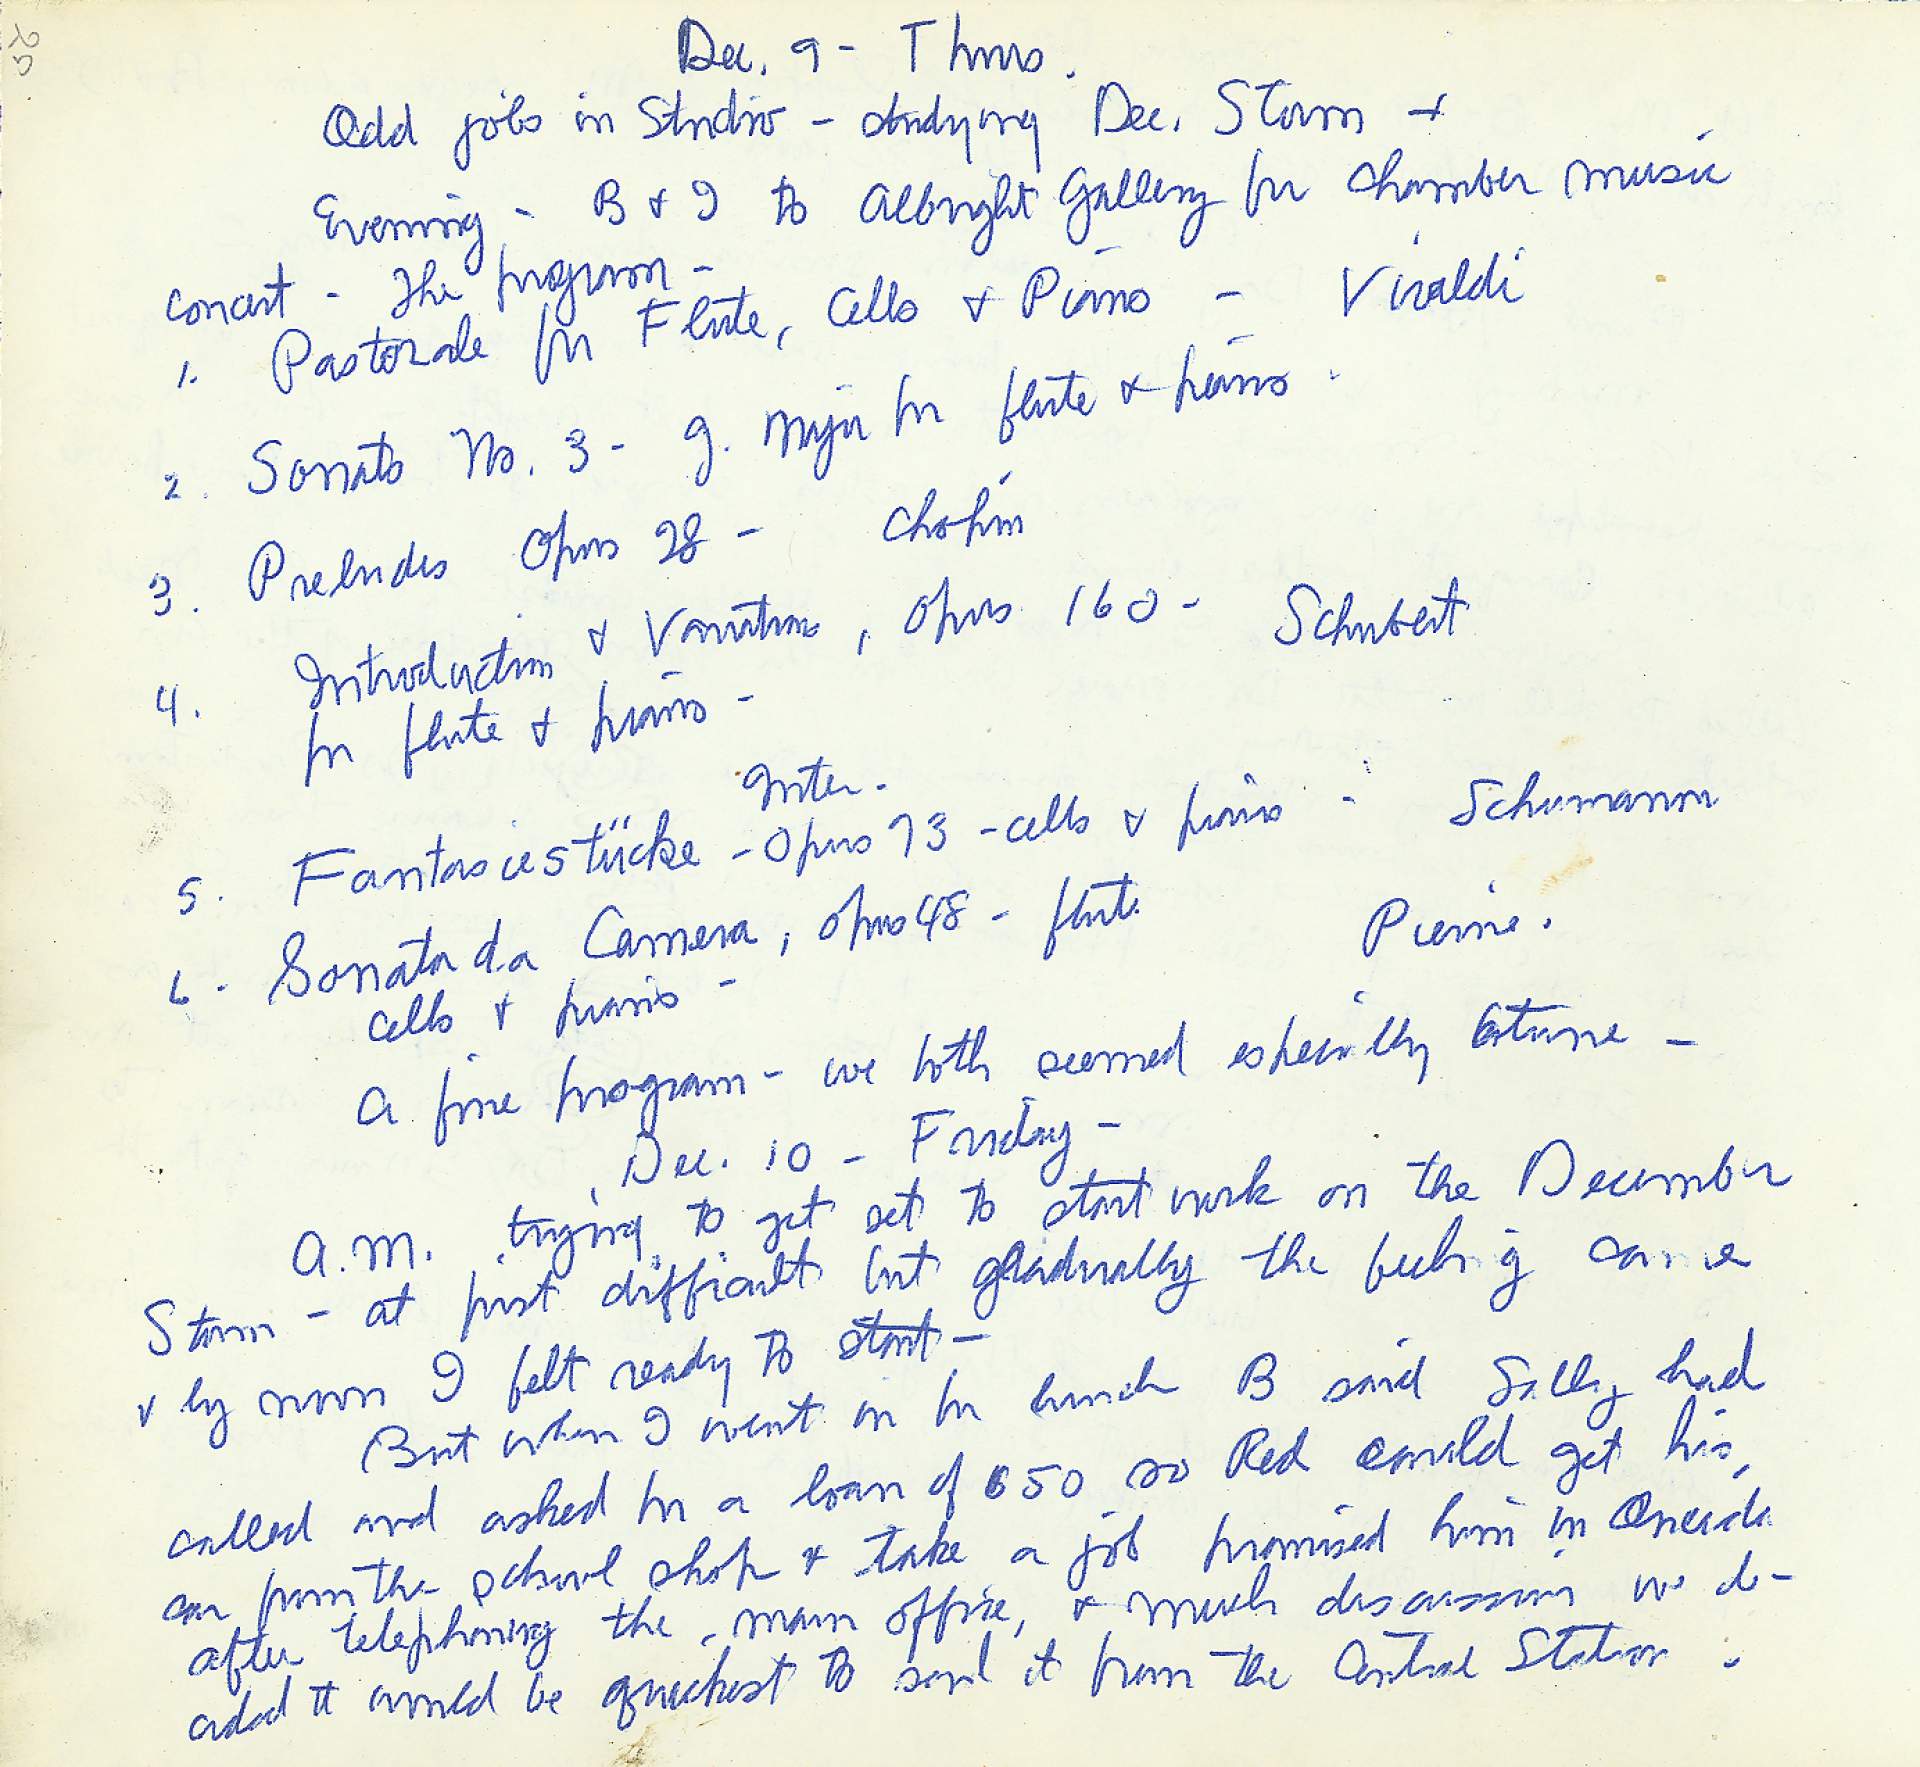 Dec. 9 - Thurs.
Odd jobs in Studio - studying Dec. Storm +
Evening - B + I to Albright Gallery for chamber music
concert - The program -
1. Pastorale for Flute, Cello + Piano - Vivaldi
2. Sonata No. 3 - G. Major for flute + piano.
3. Preludes Opus 28 - Chopin
4. Introduction + Variations, opus 160 - Schubert
for flute + piano -
Inter.
5. Fantasiestücke - Opus 73 - cello + piano - Schumann
6. Sonata da Camera, opus 48 - flute Pierne.
cello + piano -
A fine program - we both seemed especially attune -
Dec. 10 - Friday -
A.M. trying to get set to start work on the December
Storm - at first difficult but gradually the feeling came
+ by noon I felt ready to start -
But when I went in for lunch B said Sally had
called and asked for a loan of $50 so Red could get his
car from the school shop + take a job promised him in Oneida
after telephoning the main office, + much discussion we de-
cided it would be quickest to send it from the Central Station.